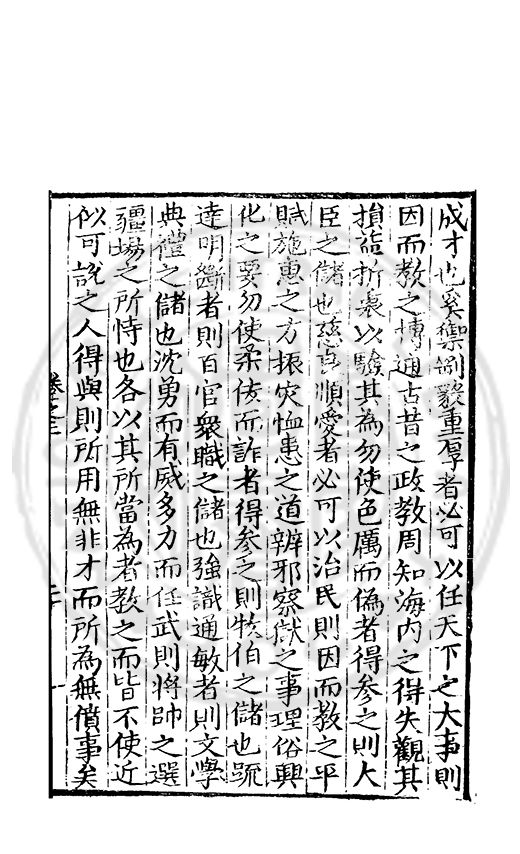 成才也奚禦剛毅重厚者必可以任天下之大事則
因而教之博通古昔之政教周知海內之得失觀其
損益折衷以驗其為勿使色厲而偽者得參之則大
臣之儲也慈良順愛者必可以治民則因而教之平
賦施惠之方振灾恤患之道辨邪察獄之事理俗興
化之要勿使柔佞而詐者得參之則牧伯之儲也疏
達明斷者則百官衆職之儲也強識通敏者則文學
典禮之儲也沈勇而有威多力而任武則將帥之選
疆埸之所恃也各以其所當為者教之而皆不使近
似可說之人得與則所用無非才而所為無僨事矣
卷之三